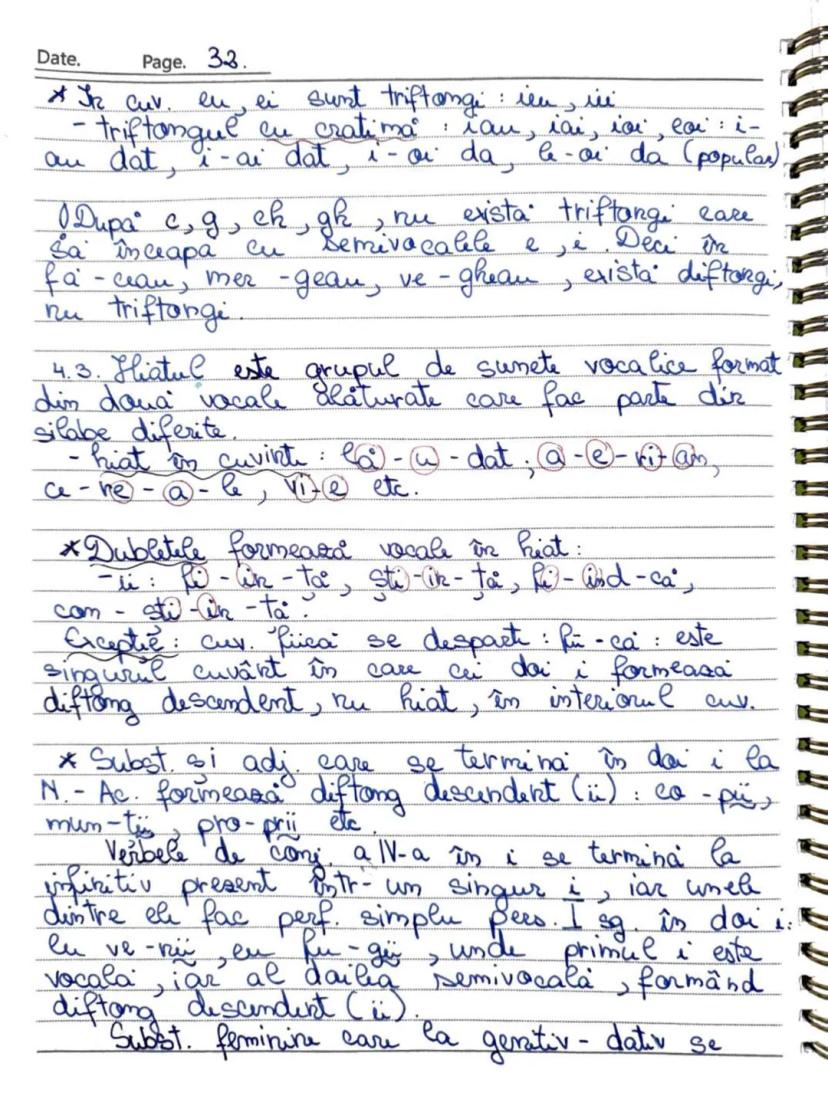 Date. Page. 33.
* În cuv. eu, ei sunt triftongi: ieu, iei
- triftongul cu cratimă: iau, iai, ioi, eoi: i-
au dat, i-ai dat, i-oi da, le-oi da (popular)
După c, g, ch, gh, nu există triftongi care
să înceapă cu semivocalele e, i. Deci în
fă-ceau, mer-geau, ve-gheau, există diftongi,
nu triftongi.
4.3. Hiatul este grupul de sunete vocalice format
din două vocale alăturate care fac parte din
silabe diferite.
- hiat în cuvinte: lă-u-dat; a-e-ri-an,
ce-re-a-le, vi-e etc.
* Dubletele formează vocale în hiat:
- ii: fi-in-ță, ști-in-ță, fi-ind-că,
con-ști-in-ță.
Excepție: cuv. fiică se desparte: fii-că: este
singurul cuvânt în care cei doi i formează
diftong descendent, nu hiat, în interiorul cuv.
* Subst. și adj. care se termină în doi i la
N.-Ac. formează diftong descendent (ii): co-pii,
mun-ții, pro-prii etc.
Verbele de conj. a IV-a în i se termină la
infinitiv prezent într-un singur i, iar unele
dintre ele fac perf. simplu pers. I sg. în doi i:
eu ve-nii, eu fu-gii, unde primul i este
vocală, iar al doilea semivocală, formând
diftong descendent (ii).
Subst. feminine care la genitiv-dativ se